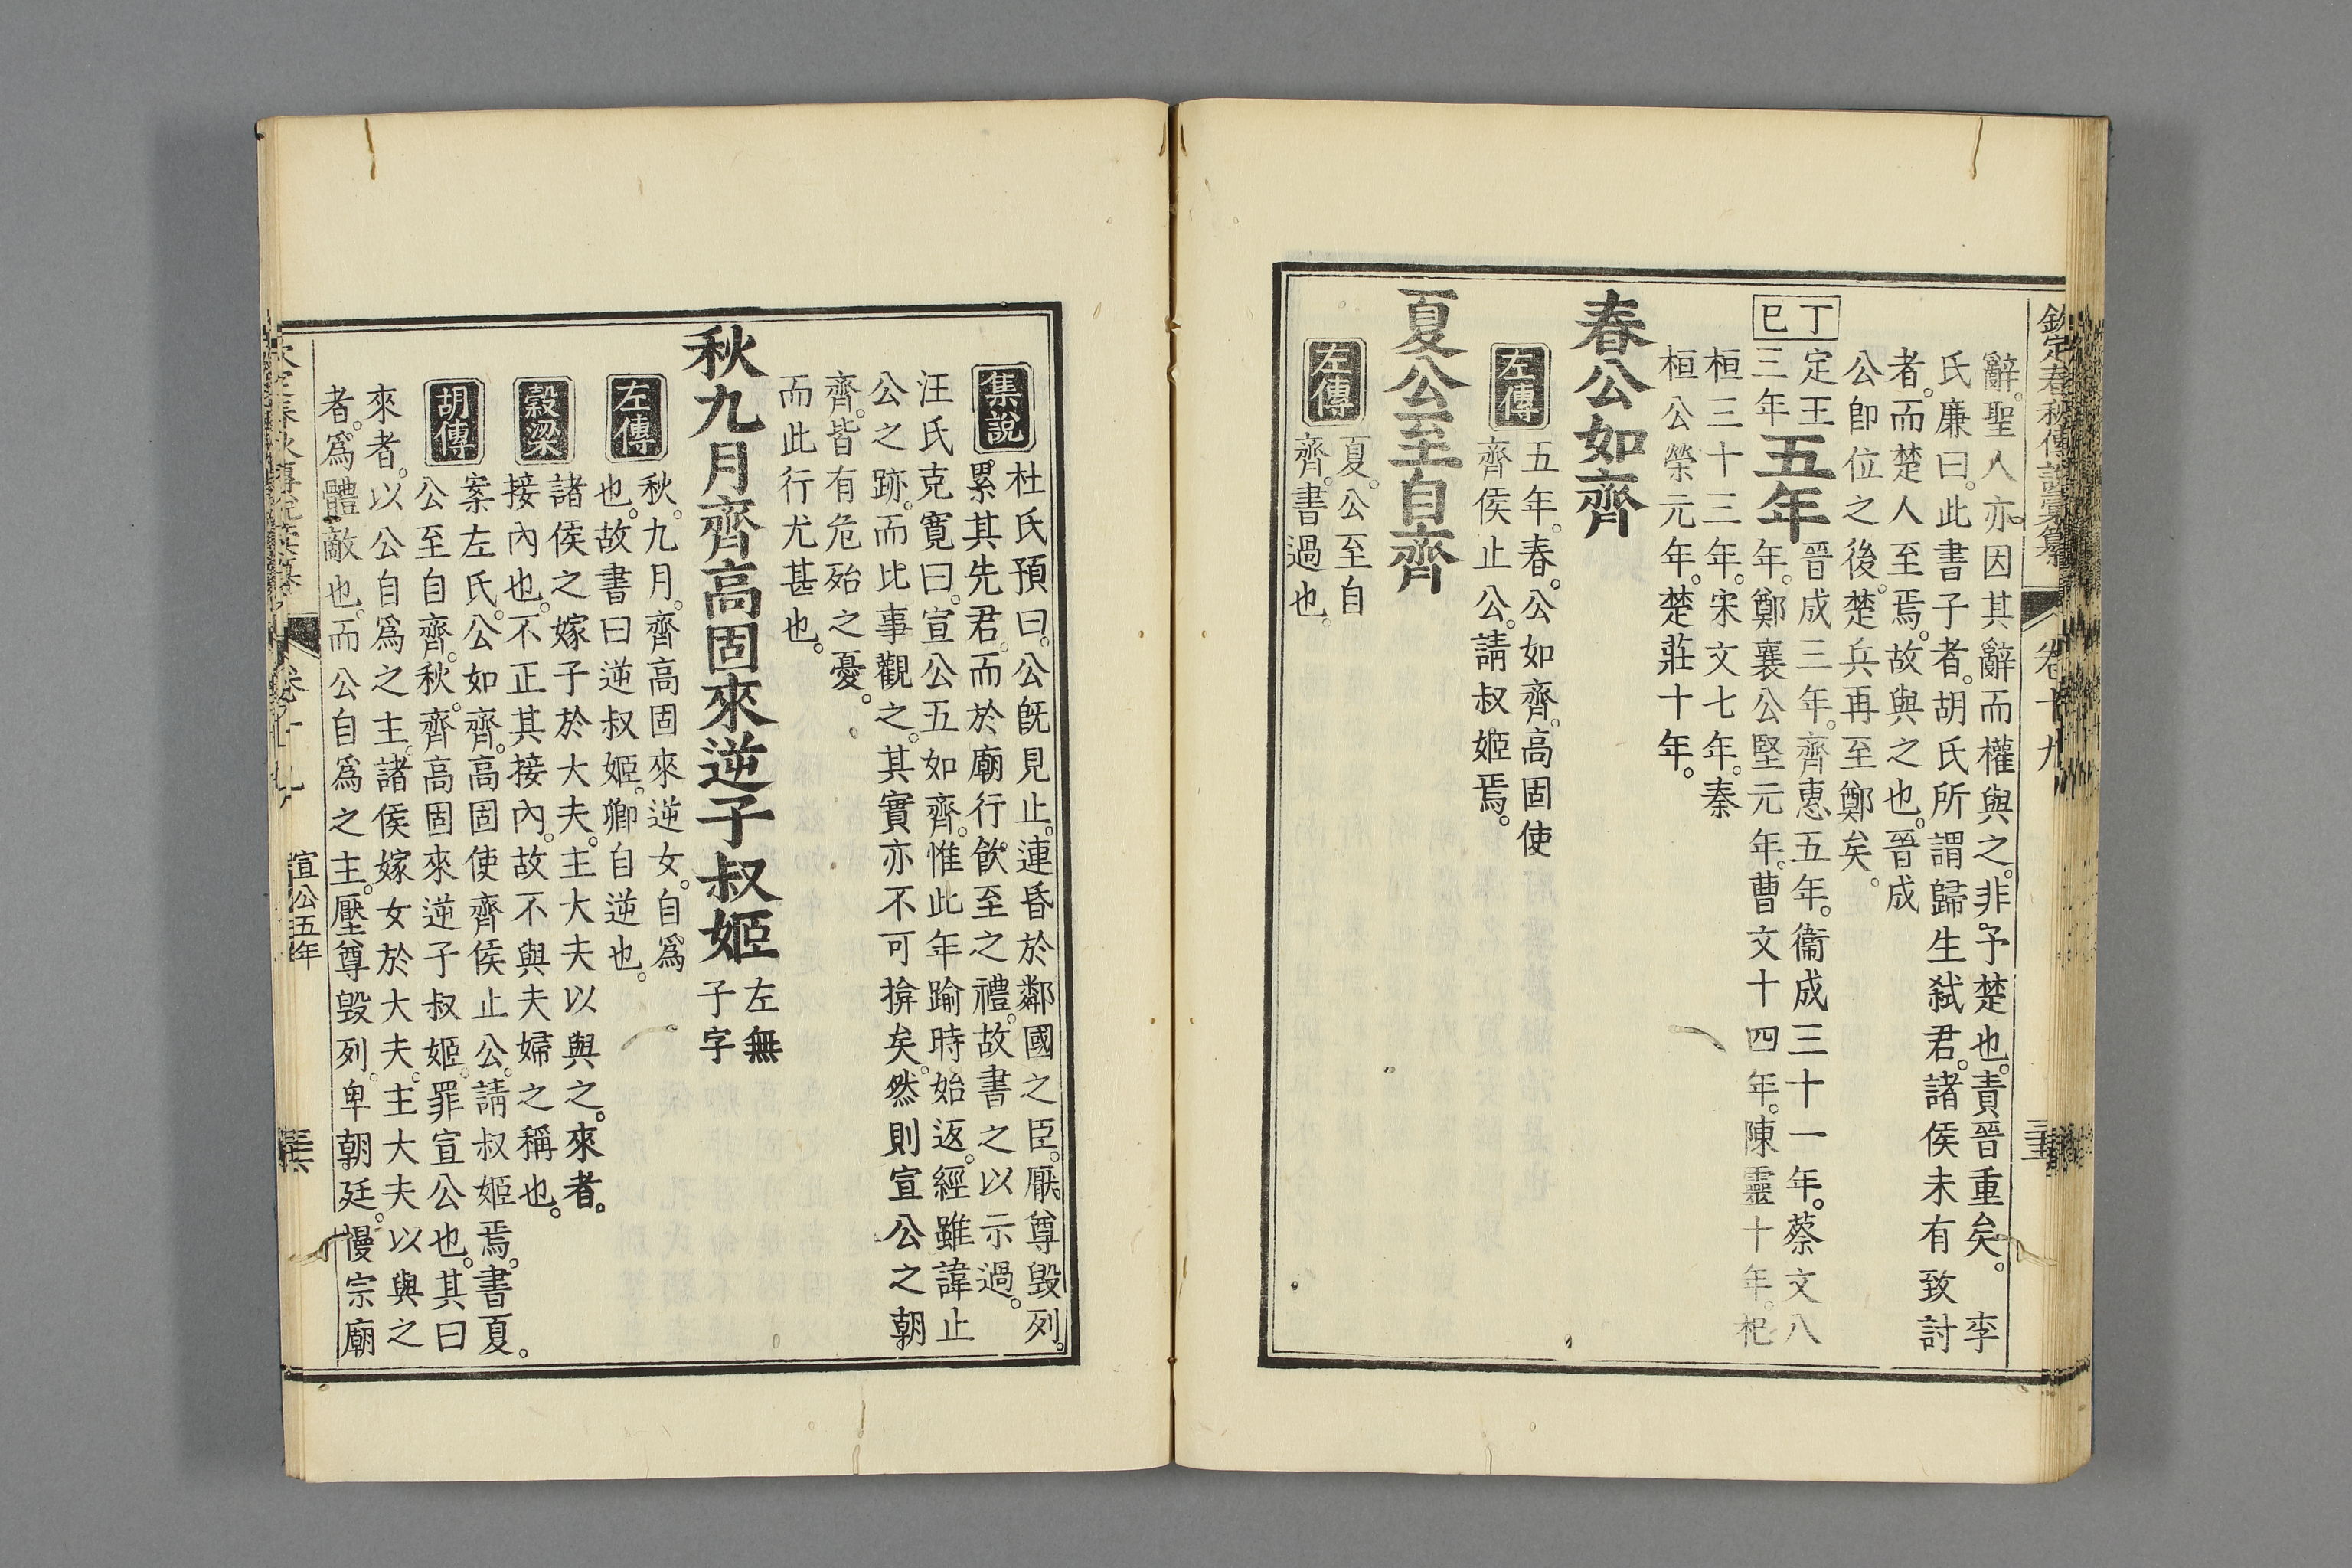 欽定春秋傳說彙纂 卷十九
辭。聖人亦因其辭而權與之。非予楚也。責晉重矣。 李
氏廉曰。此書子者。胡氏所謂歸生弒君。諸侯未有致討
者。而楚人至焉。故與之也。晉成
公卽位之後。楚兵再至鄭矣。
丁巳
定王三年
五年
晉成三年。齊惠五年。衞成三十一年。蔡文八
年。鄭襄公堅元年。曹文十四年。陳靈十年。杞
桓三十三年。宋文七年。秦
桓公榮元年。楚莊十年。
春公如齊
左傳
五年。春。公如齊。高固使
齊侯止公。請叔姬焉。
夏公至自齊
左傳
夏。公至自
齊。書過也。
集說
杜氏預曰。公旣見止。連昏於鄰國之臣。厭尊毀列。
累其先君。而於廟行飮至之禮。故書之以示過。
汪氏克寬曰。宣公五如齊。惟此年踰時始返。經雖諱止
公之跡。而比事觀之。其實亦不可揜矣。然則宣公之朝
齊。皆有危殆之憂。
而此行尤甚也。
秋九月齊高固來逆子叔姬
左無
子字
左傳
秋。九月。齊高固來逆女。自爲
也。故書曰逆叔姬。卿自逆也。
穀梁
諸侯之嫁子於大夫。主大夫以與之。來者。
接內也。不正其接內。故不與夫婦之稱也。
胡傳
案左氏。公如齊。高固使齊侯止公。請叔姬焉。書夏。
公至自齊。秋。齊高固來逆子叔姬。罪宣公也。其曰
來者。以公自爲之主。諸侯嫁女於大夫。主大夫以與之
者。爲體敵也。而公自爲之主。壓尊毀列。卑朝廷。慢宗廟
宣公五年